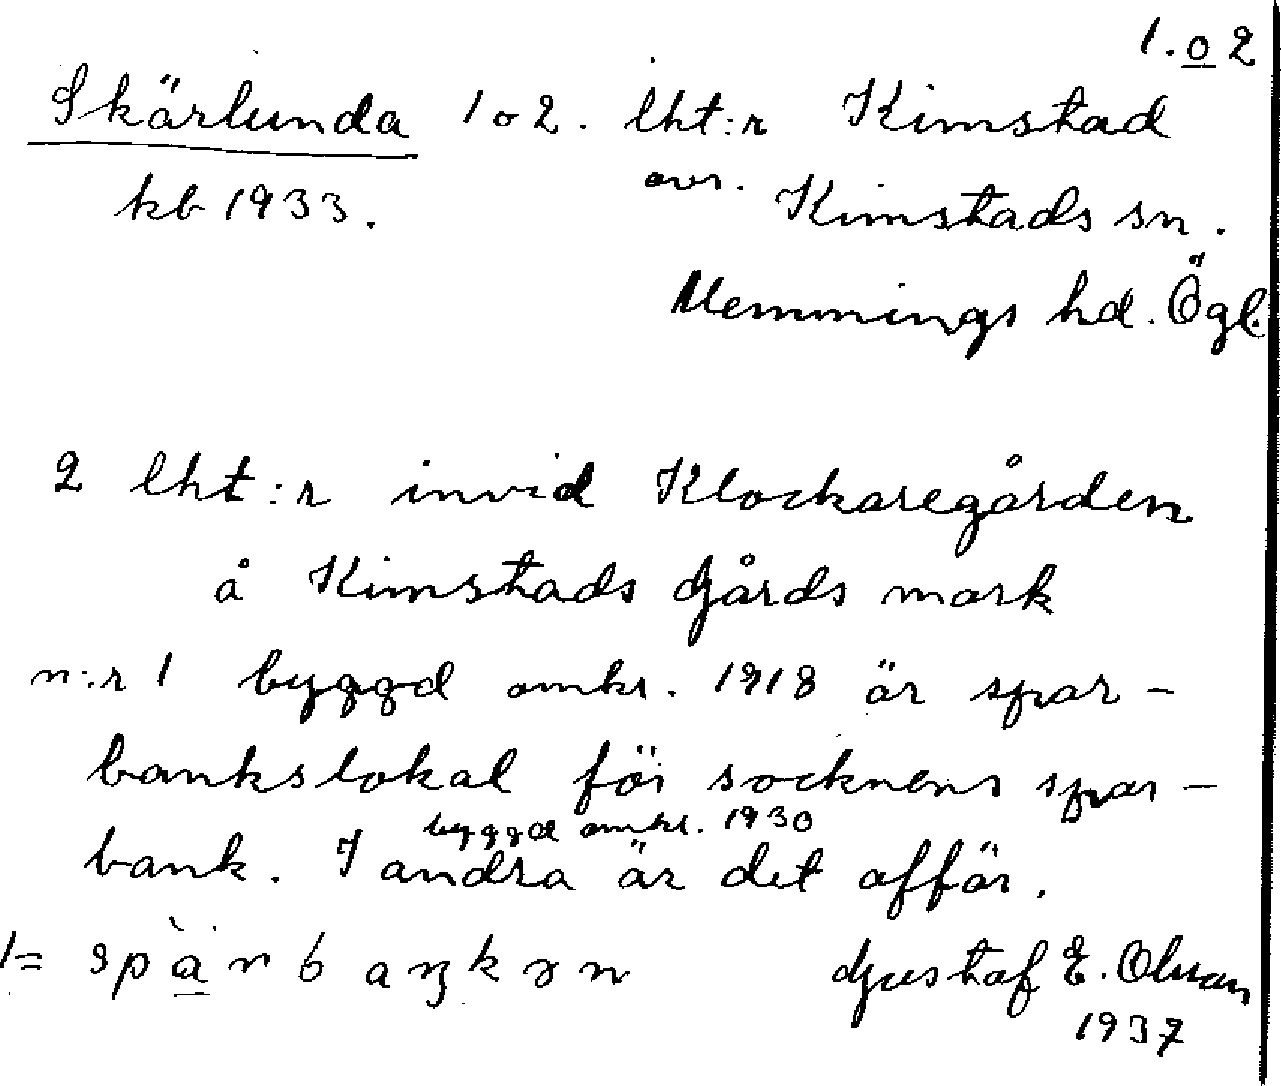 1. o 2
Skärlunda 1 o 2. lht:r Kimstad
kb 1933. avs. Kimstads sn.
Memmings hd. Ögl.
2 lht:r invid Klockaregården
å Kimstads Gårds mark
n:r 1 byggd omkr. 1918 är spar-
bankslokal för socknens spar-
byggd omkr. 1930
bank. I andra är det affär.
1=
Gustaf E. Olsson
1937